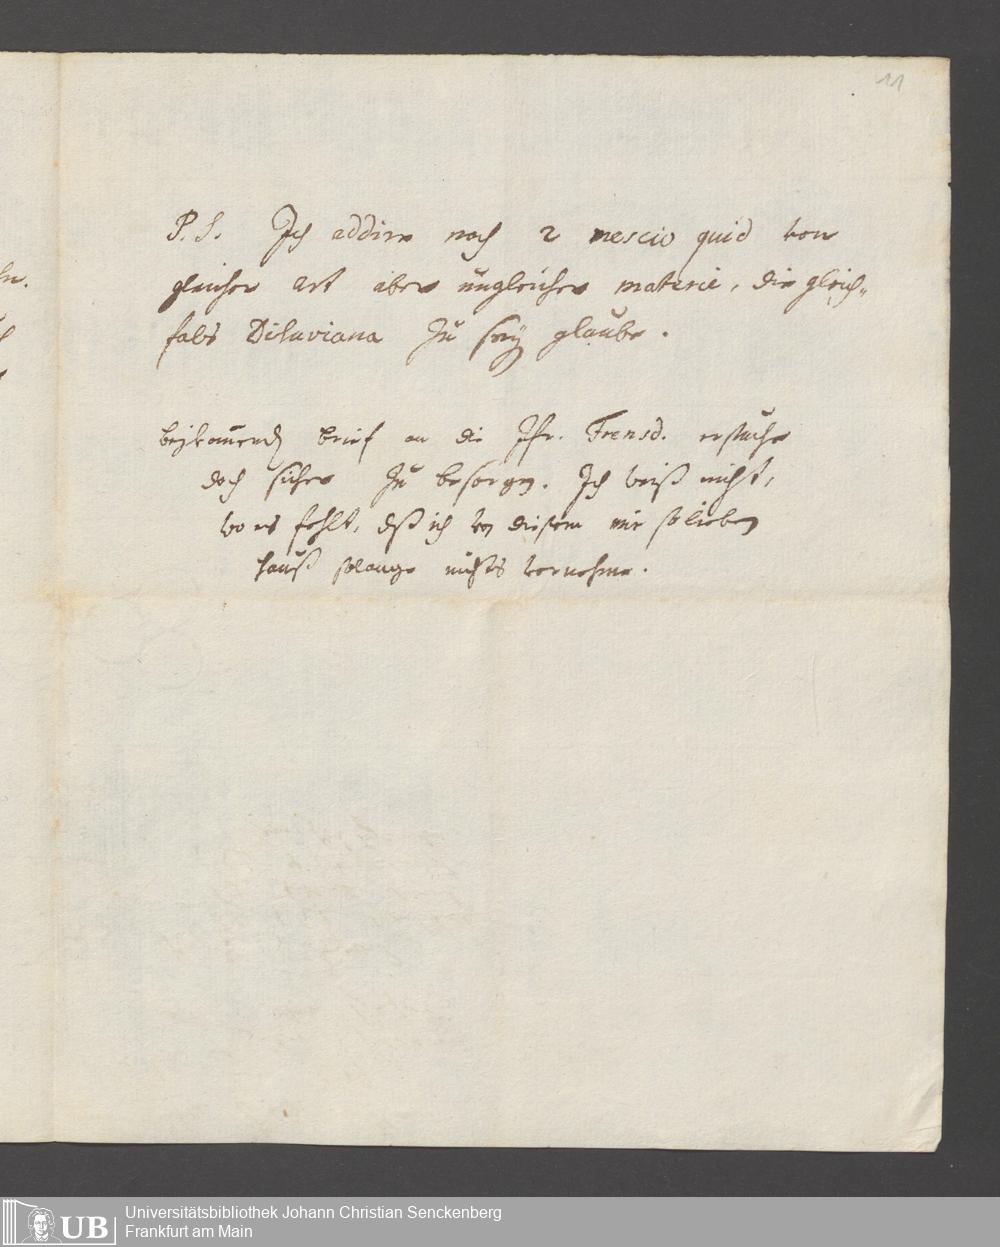 11
P. S. Ich addire noch 2 nescio quid von
gleicher art aber ungleicher materie, die gleich„
fals Diluviana zu seÿ glaube.
beÿkom̄end brief an die Jfr. Trensd. ersuche
doch sicher zu besorgen. Ich weiß nicht,
wo es fehlt, dß ich von diesem mir so lieben
Hauß solange nichts vernehme.
UB
Universitätsbibliothek Johann Christian Senckenberg
Frankfurt am Main